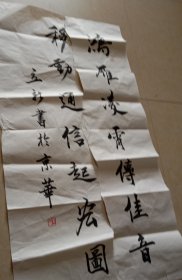 鴻雁凌霄傳佳音
移動通信起宏圖
立新書於京華